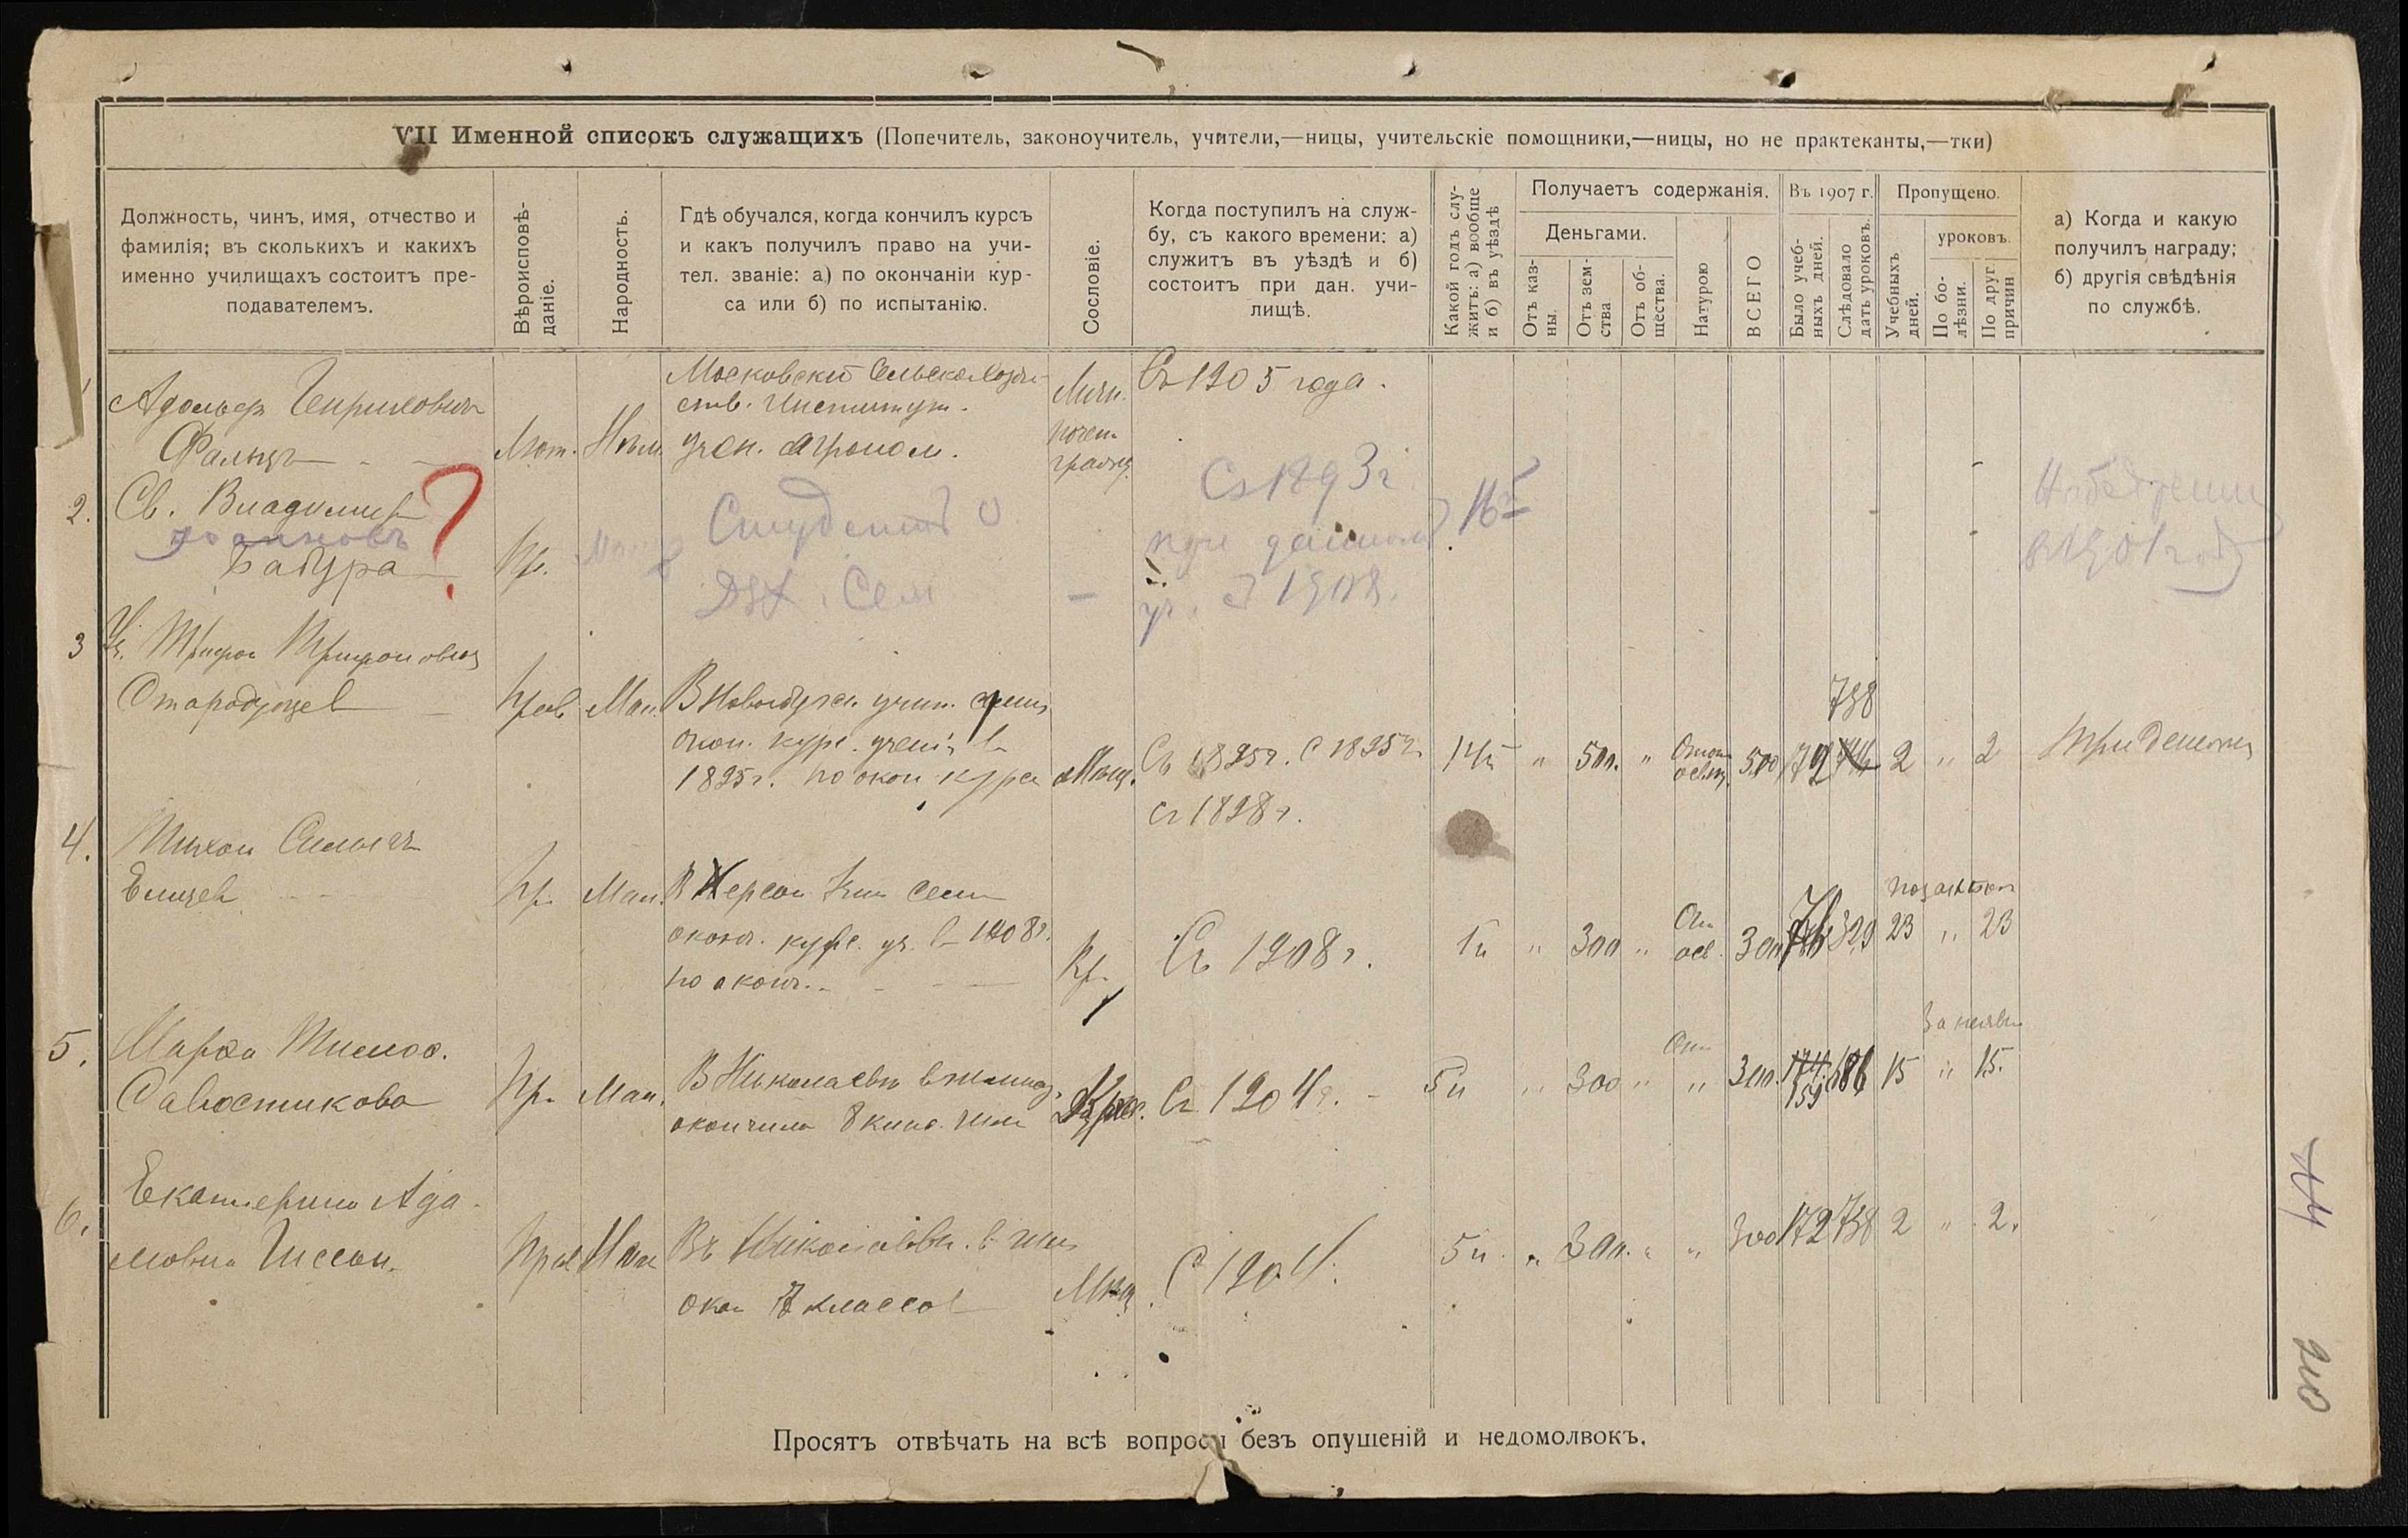 VII Именной списокъ служащихъ (Попечитель, законоучитель, учители,—ницы, учительскіе помощники,—ницы, но не практеканты,—тки)
Должность, чинъ, имя, отчество и
фамилія; въ сколькихъ и какихъ
именно училищахъ состоитъ пре-
подавателемъ.
Вѣроисповѣ-
даніе.
Народность.
Гдѣ обучался, когда кончилъ курсъ
и какъ получилъ право на учи-
тел. званіе: а) по окончаніи кур-
са или б) по испытанію.
Сословіе.
Когда поступилъ на служ-
бу, съ какого времени: а)
служитъ въ уѣздѣ и б)
состоитъ при дан. учи-
лищѣ.
Какой годъ слу-
житъ: а) вообще
и б) въ уѣздѣ
Получаетъ содержанія.
Деньгами.
Отъ каз-
ны.
Отъ зем-
ства
Отъ об-
щества.
Натурою
ВСЕГО
Въ 1907 г.
Было учеб-
ныхъ дней.
Слѣдовало
дать уроковъ.
Пропущено.
Учебныхъ
дней.
уроковъ.
По бо-
лѣзни.
По друг.
причин
а) Когда и какую
получилъ награду;
б) другія свѣдѣнія
по службѣ.
1
Адольфъ Генриховичъ
Фальцъ
Лют. Нѣм.
Московскій Сельскохозяй-
ств. Институт.
учен. агроном.
Личн.
почет.
гражд.
Съ 1905 года.
2. Св. Владимир
Бабура
?
Пр.
Студентъ
Дух. Сем
—
Съ 1893 г
при данном
уч. с 1908.
16й
Набедренник
в 1901 году
3 Уч. Трифон Трифонович
Стародубцев
Прав. Мал.
В Новобугск. учит. семин
окон. курс. ученія в
1895 г. по окон курса
Мѣщ.
Съ 1895 г. С 1895 г.
ст 1898 г.
14й " 500. " 500 179 738 2 " 2
4. Тихон Силыч
Елисеев
Пр. Мал.
В Херсон сем
оконч. курс. уч. в 1908 г.
по оконч.
Кр.
Съ 1908 г.
1й " 300 " От
осв. 300 76 329 23 " 23
5. Марфа Тимоф.
Савостикова
Пр. Мал.
В Николаевѣ в гимназ.
окончила 8 клас. гим
Крес.
Съ 1904 г.
5й " 300 " " 300. 174. 159 686 15 " 15.
6. Екатерина Ада-
мовна Гиссон.
Прав
Въ Николаевѣ. в гим
окон 7 классов
Мѣщ.
С 1904.
5й. " 300. " " 300 172 738 2 " 2.
44
210
Просятъ отвѣчать на всѣ вопросы безъ опущеній и недомолвокъ.